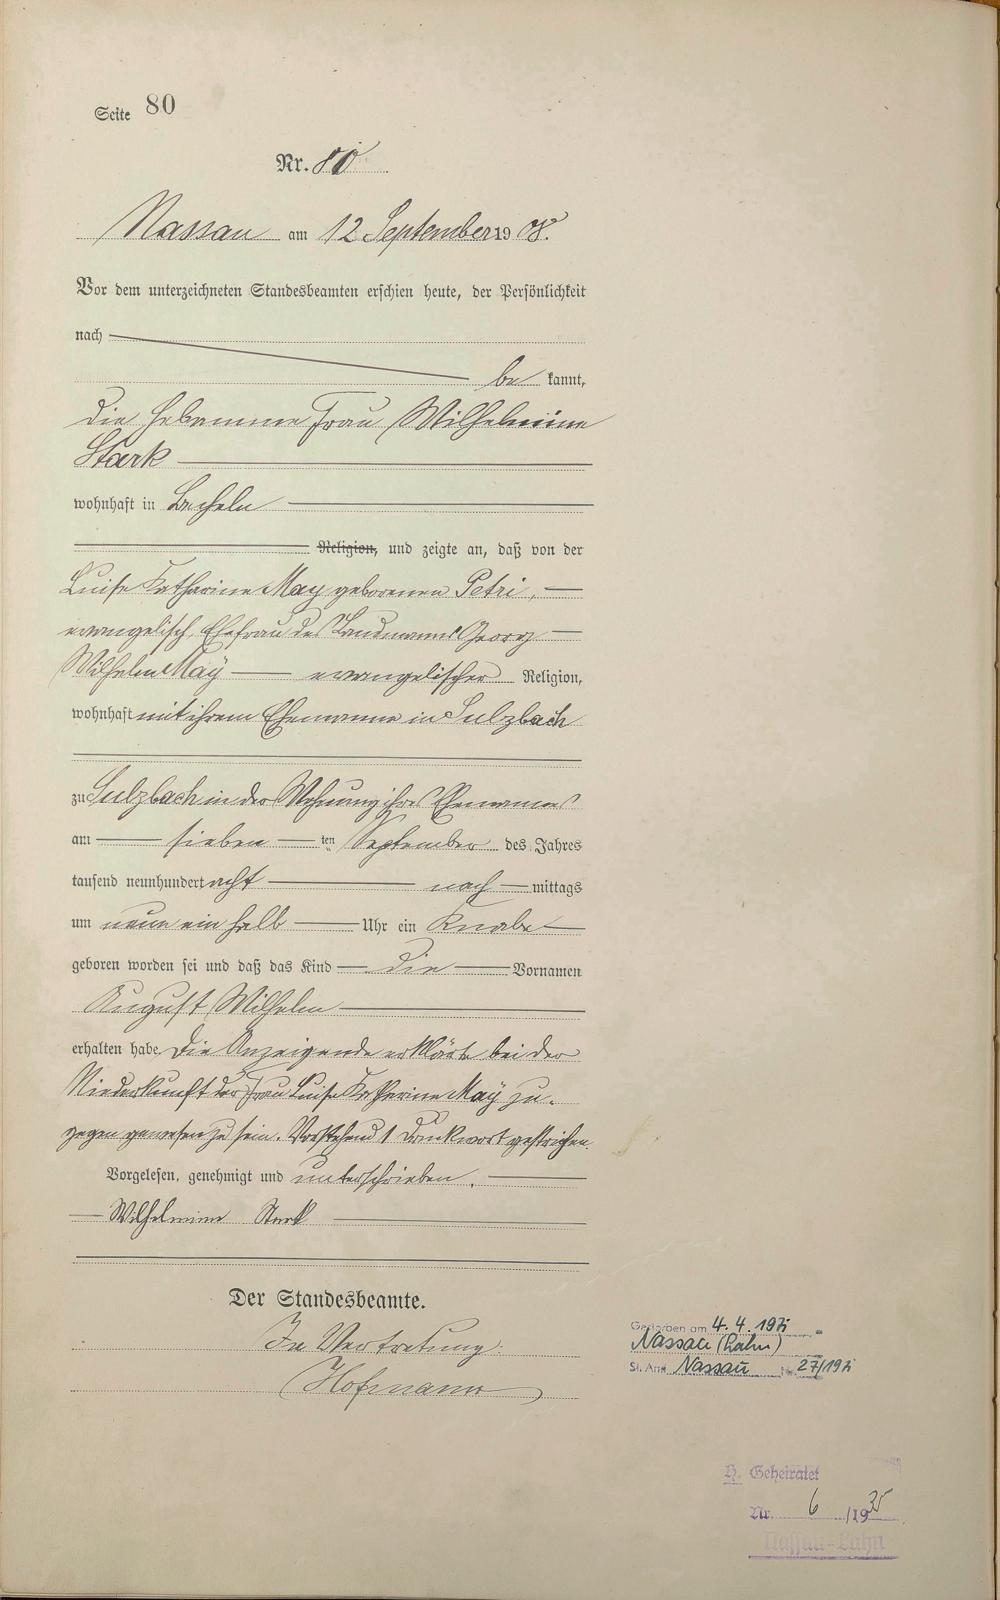 Seite 80
Nr. 80
Nassau am 12 September 1908.
Vor dem unterzeichneten Standesbeamten erschien heute, der Persönlichkeit
nach
be kannt,
die Hebamme Frau Wilhelmine
Stark
wohnhaft in Becheln
Religion, und zeigte an, daß von der
Luise Katharine May geborenen Petri,
evangelisch, Ehefrau des Landmanns Georg
Wilhelm May evangelischer Religion,
wohnhaft mit ihrem Ehemanne in Sulzbach
zu Sulzbach in der Wohnung ihres Ehemannes
am sieben ten September des Jahres
tausend neunhundert acht nach mittags
um neun ein halb Uhr ein Knabe
geboren worden sei und daß das Kind die Vornamen
August Wilhelm
erhalten habe. Die Anzeigende erklärte bei der
Niederkunft der Frau Luise Katharine May zu-
gegen gewesen zu sein. Vorstehend 1 Druckwort gestrichen.
Vorgelesen, genehmigt und unterschrieben.
Wilhelmine Stark
Der Standesbeamte.
In Vertretung.
Hofmann
Gestorben am 4.4.197
Nassau (Lahn)
St. Amt Nassau Nr. 27/197
H. Geheiratet
Nr. 6 /1935
Nassau-Lahn